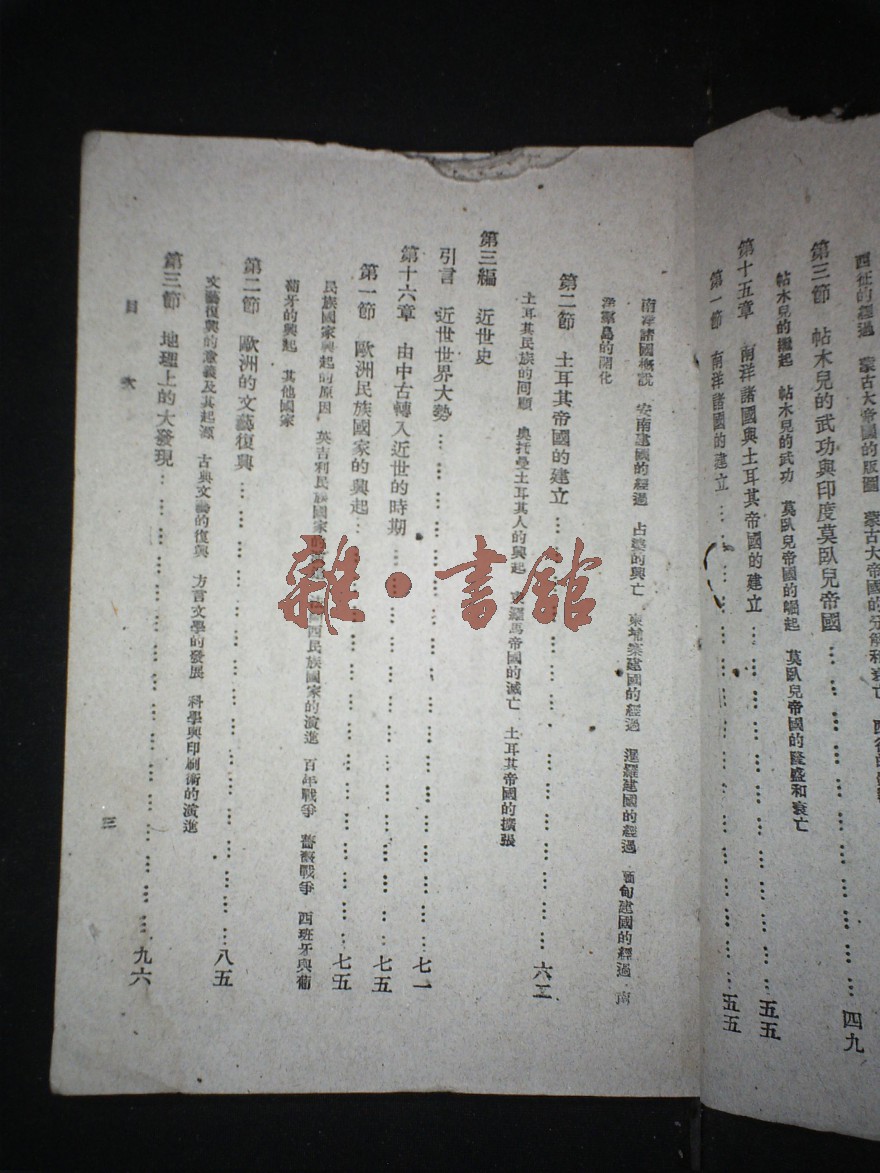 西征的經過 蒙古大帝國的版圖 蒙古大帝國的分解和衰亡
第三節 帖木兒的武功與印度莫臥兒帝國……四九
帖木兒的繼起 帖木兒的武功 莫臥兒帝國的崛起 莫臥兒帝國的隆盛和衰亡
第十五章 南洋諸國與土耳其帝國的建立……五五
第一節 南洋諸國的建立……五五
南洋諸國概說 安南建國的經過 占婆的興亡 柬埔寨建國的經過 暹羅建國的經過 緬甸建國的經過 南
洋羣島的開化
第二節 土耳其帝國的建立……六二
土耳其民族的回顧 奧托曼土耳其人的興起 東羅馬帝國的滅亡 土耳其帝國的擴張
第三編 近世史
引言 近世世界大勢……七一
第十六章 由中古轉入近世的時期……七五
第一節 歐洲民族國家的興起……七五
民族國家興起的原因 英吉利民族國家 西民族國家的演進 百年戰爭 薔薇戰爭 西班牙與葡
萄牙的興起 其他國家
第二節 歐洲的文藝復興……八五
文藝復興的意義及其起源 古典文藝的復興 方言文學的發展 科學與印刷術的演進
第三節 地理上的大發現……九六
目次
三
雜·書館